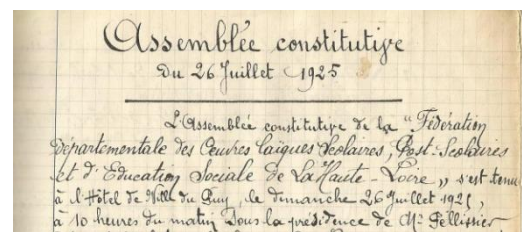 Assemblée constitutive
du 26 Juillet 1925
L'Assemblée constitutive de la "Fédération
départementale des Œuvres laïques Scolaires, Post-Scolaires
et d'Education Sociale de La Haute-Loire" s'est tenue
à l'Hôtel de Ville du Puy, le dimanche 26 Juillet 1925,
à 10 heures du matin sous la présidence de Mr Pellissier